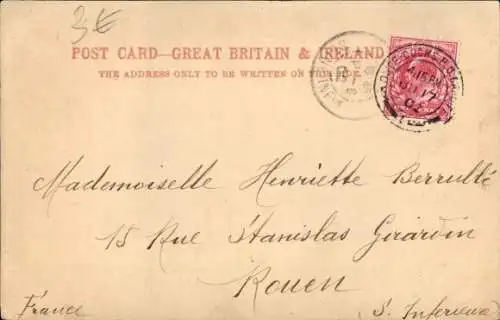 3€
POST CARD—GREAT BRITAIN & IRELAND
THE ADDRESS ONLY TO BE WRITTEN ON THIS SIDE.
4.15 PM
17
Mademoiselle Henriette Berrubé
15 Rue Stanislas Girardin
Rouen
France
S. Inferieure